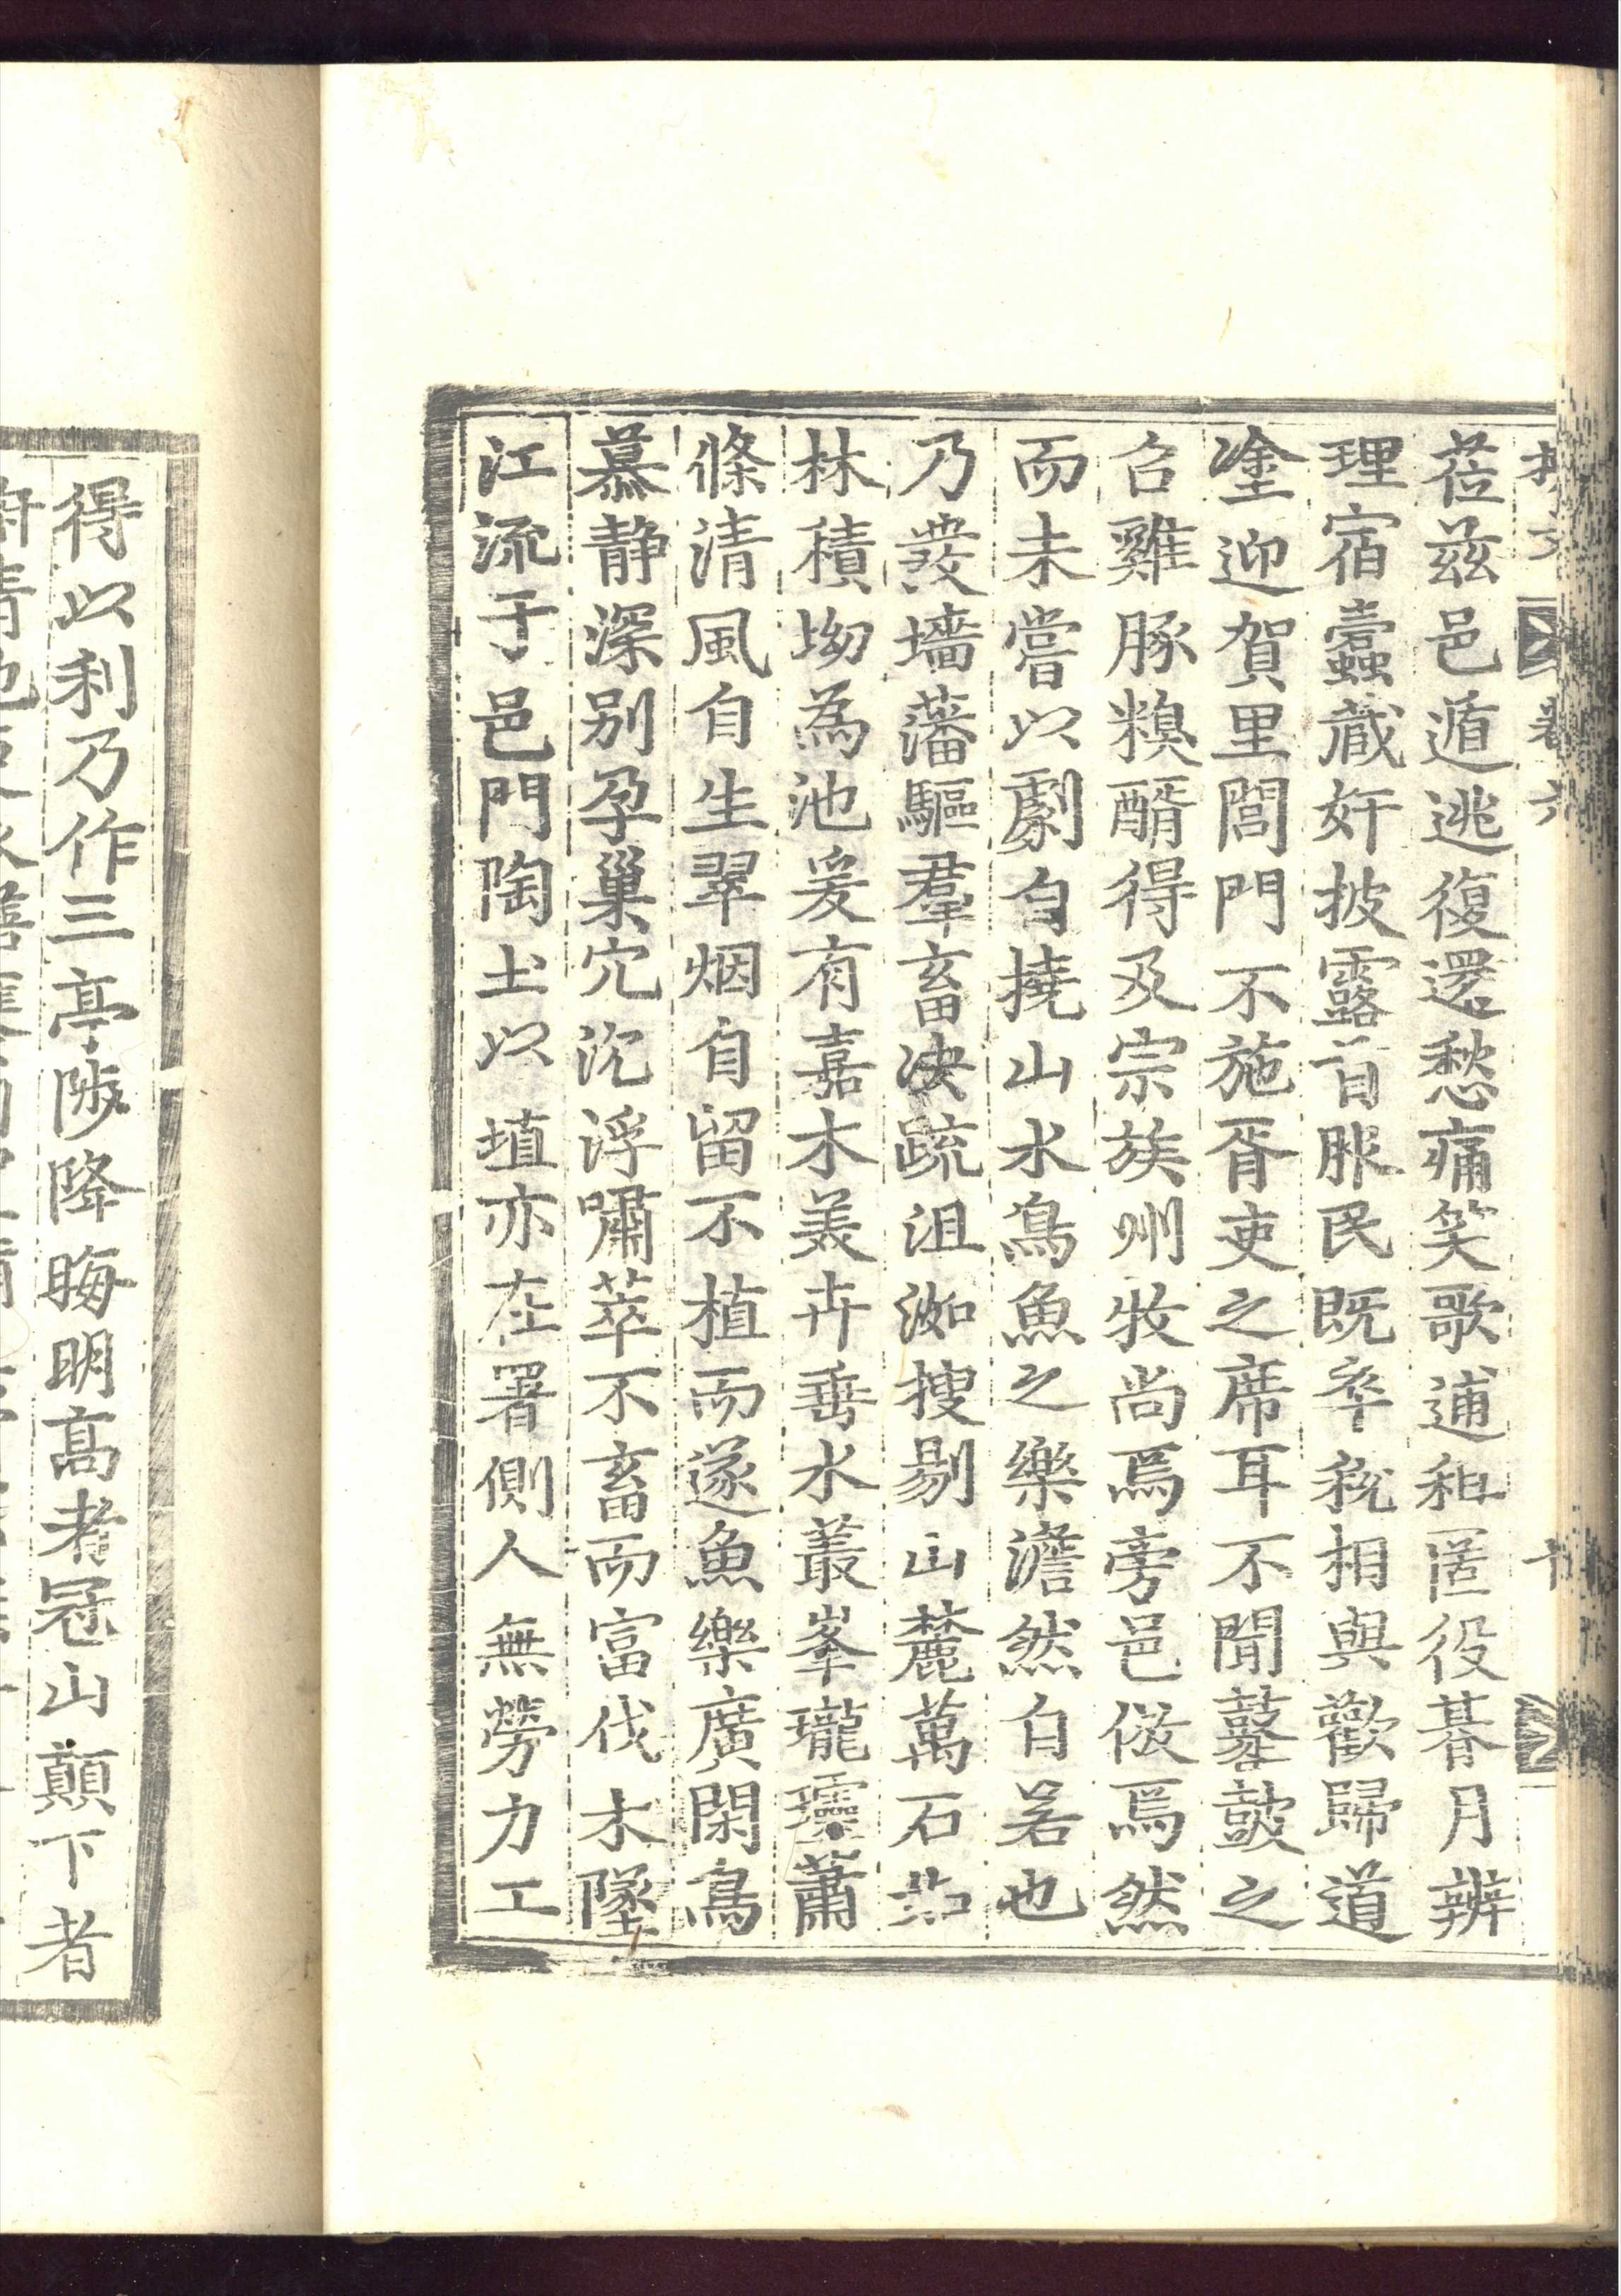 卷六
十
莅兹邑遁逃復還愁痛笑歌逋租匿役朞月辨
理宿蠹藏奸披露首服民既卒稅相與歡歸道
塗迎賀里閭門不施胥吏之席耳不聞鼛鼓之
召雞豚糗醑得及宗族州牧尚焉旁邑倣焉然
而未嘗以劇自撓山水鳥魚之樂澹然自若也
乃發墻藩驅羣畜決疏沮洳搜剔山麓萬石如
林積坳為池爰有嘉木美卉垂水叢峯瓏瓏蕭
條清風自生翠烟自留不植而遂魚樂廣閑鳥
慕靜深別孕巢穴沉浮嘯萃不畜而富伐木墜
江流于邑門陶土以埴亦在署側人無勞力工
得以利乃作三亭陟降晦明高者冠山顛下者